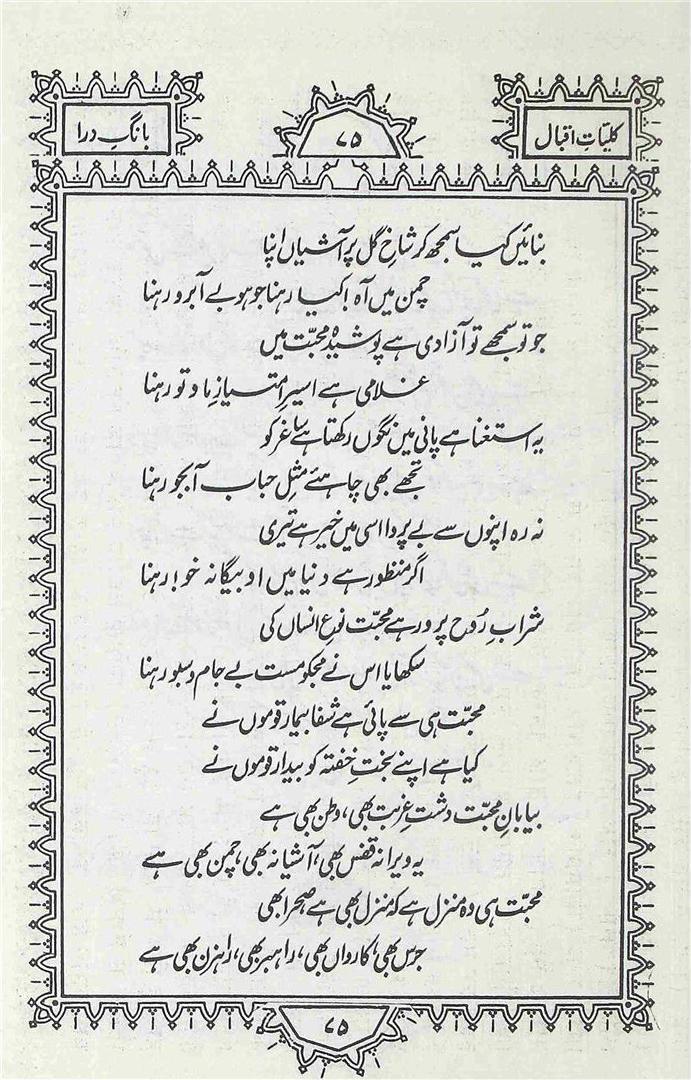 کلیاتِ اقبال
۷۵
بانگِ درا
بنائیں کیا سمجھ کر شاخِ گل پر آشیاں اپنا
چمن میں آہ! کیا رہنا جو ہو بے آبرو رہنا
جو تو سمجھے تو آزادی ہے پوشیدہ محبّت میں
غلامی ہے اسیرِ امتیازِ ما و تو رہنا
یہ استغنا ہے پانی میں نگوں رکھتا ہے ساغر کو
تجھے بھی چاہئے مثلِ حبابِ آبجو رہنا
نہ رہ اپنوں سے بے پروا اسی میں خیر ہے تیری
اگر منظور ہے دنیا میں او بیگانہ خو! رہنا
شرابِ رُوح پرور ہے محبّت نوعِ انساں کی
سکھایا اس نے مجکو مست بے جام و سبو رہنا
محبّت ہی سے پائی ہے شفا بیمار قوموں نے
کیا ہے اپنے بختِ خفتہ کو بیدار قوموں نے
بیابانِ محبّت دشتِ غربت بھی، وطن بھی ہے
یہ ویرانہ قفس بھی، آشیانہ بھی، چمن بھی ہے
محبّت ہی وہ منزل ہے کہ منزل بھی ہے صحرا بھی
جرس بھی، کارواں بھی، راہبر بھی، راہزن بھی ہے
۷۵